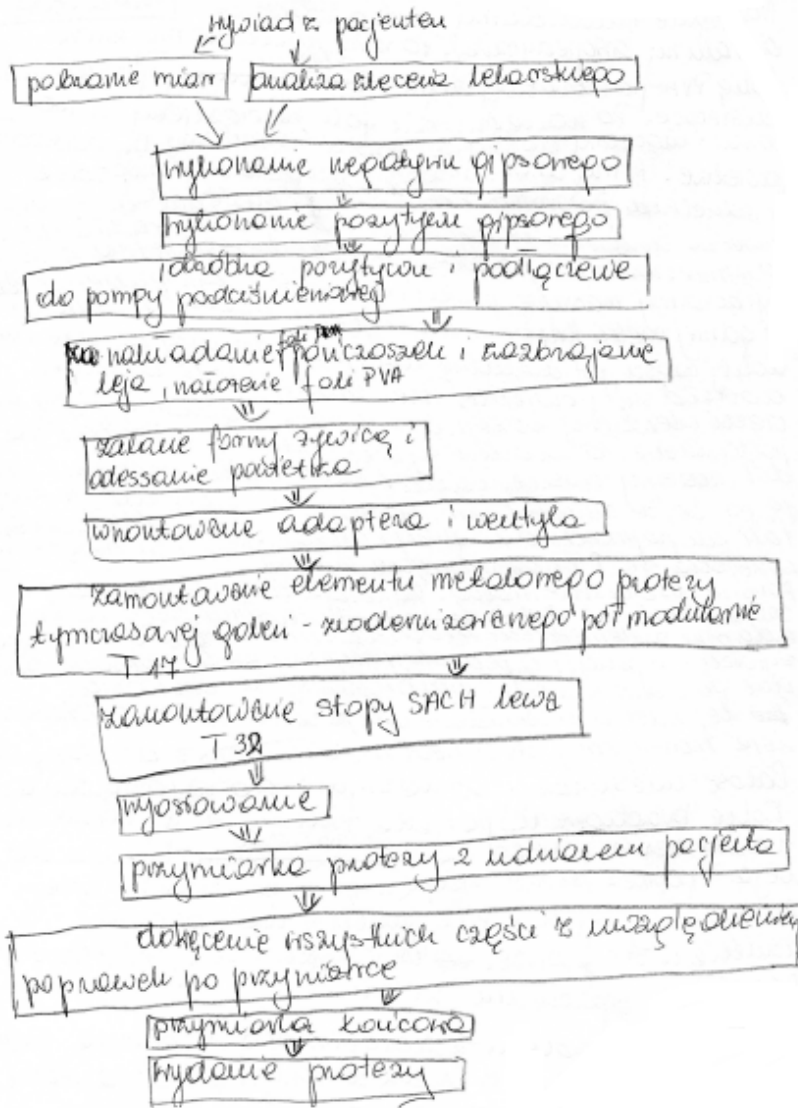 wywiad z pacjentem
pobranie miar
analiza zlecenia lekarskiego
wykonanie negatywu gipsowego
wykonanie pozytywu gipsowego
obróbka pozytywu i podłączenie
do pompy podciśnieniowej
nakładanie pończoszek i nazbrajanie
leja, nałożenie foli PVA
zalanie formy żywicą i
odessanie powietrza
wmontowanie adaptera i wentyla
zamontowanie elementu metalowego protezy
tymczasowej goleni - zmodernizowanego pół modularnie
T 17
zamontowanie stopy SACH lewa
T 32
wyosiowanie
przymiarka protezy z udziałem pacjenta
dokręcenie wszystkich części z uwzględnieniem
poprawek po przymiarce
przymiarka końcowa
wydanie protezy